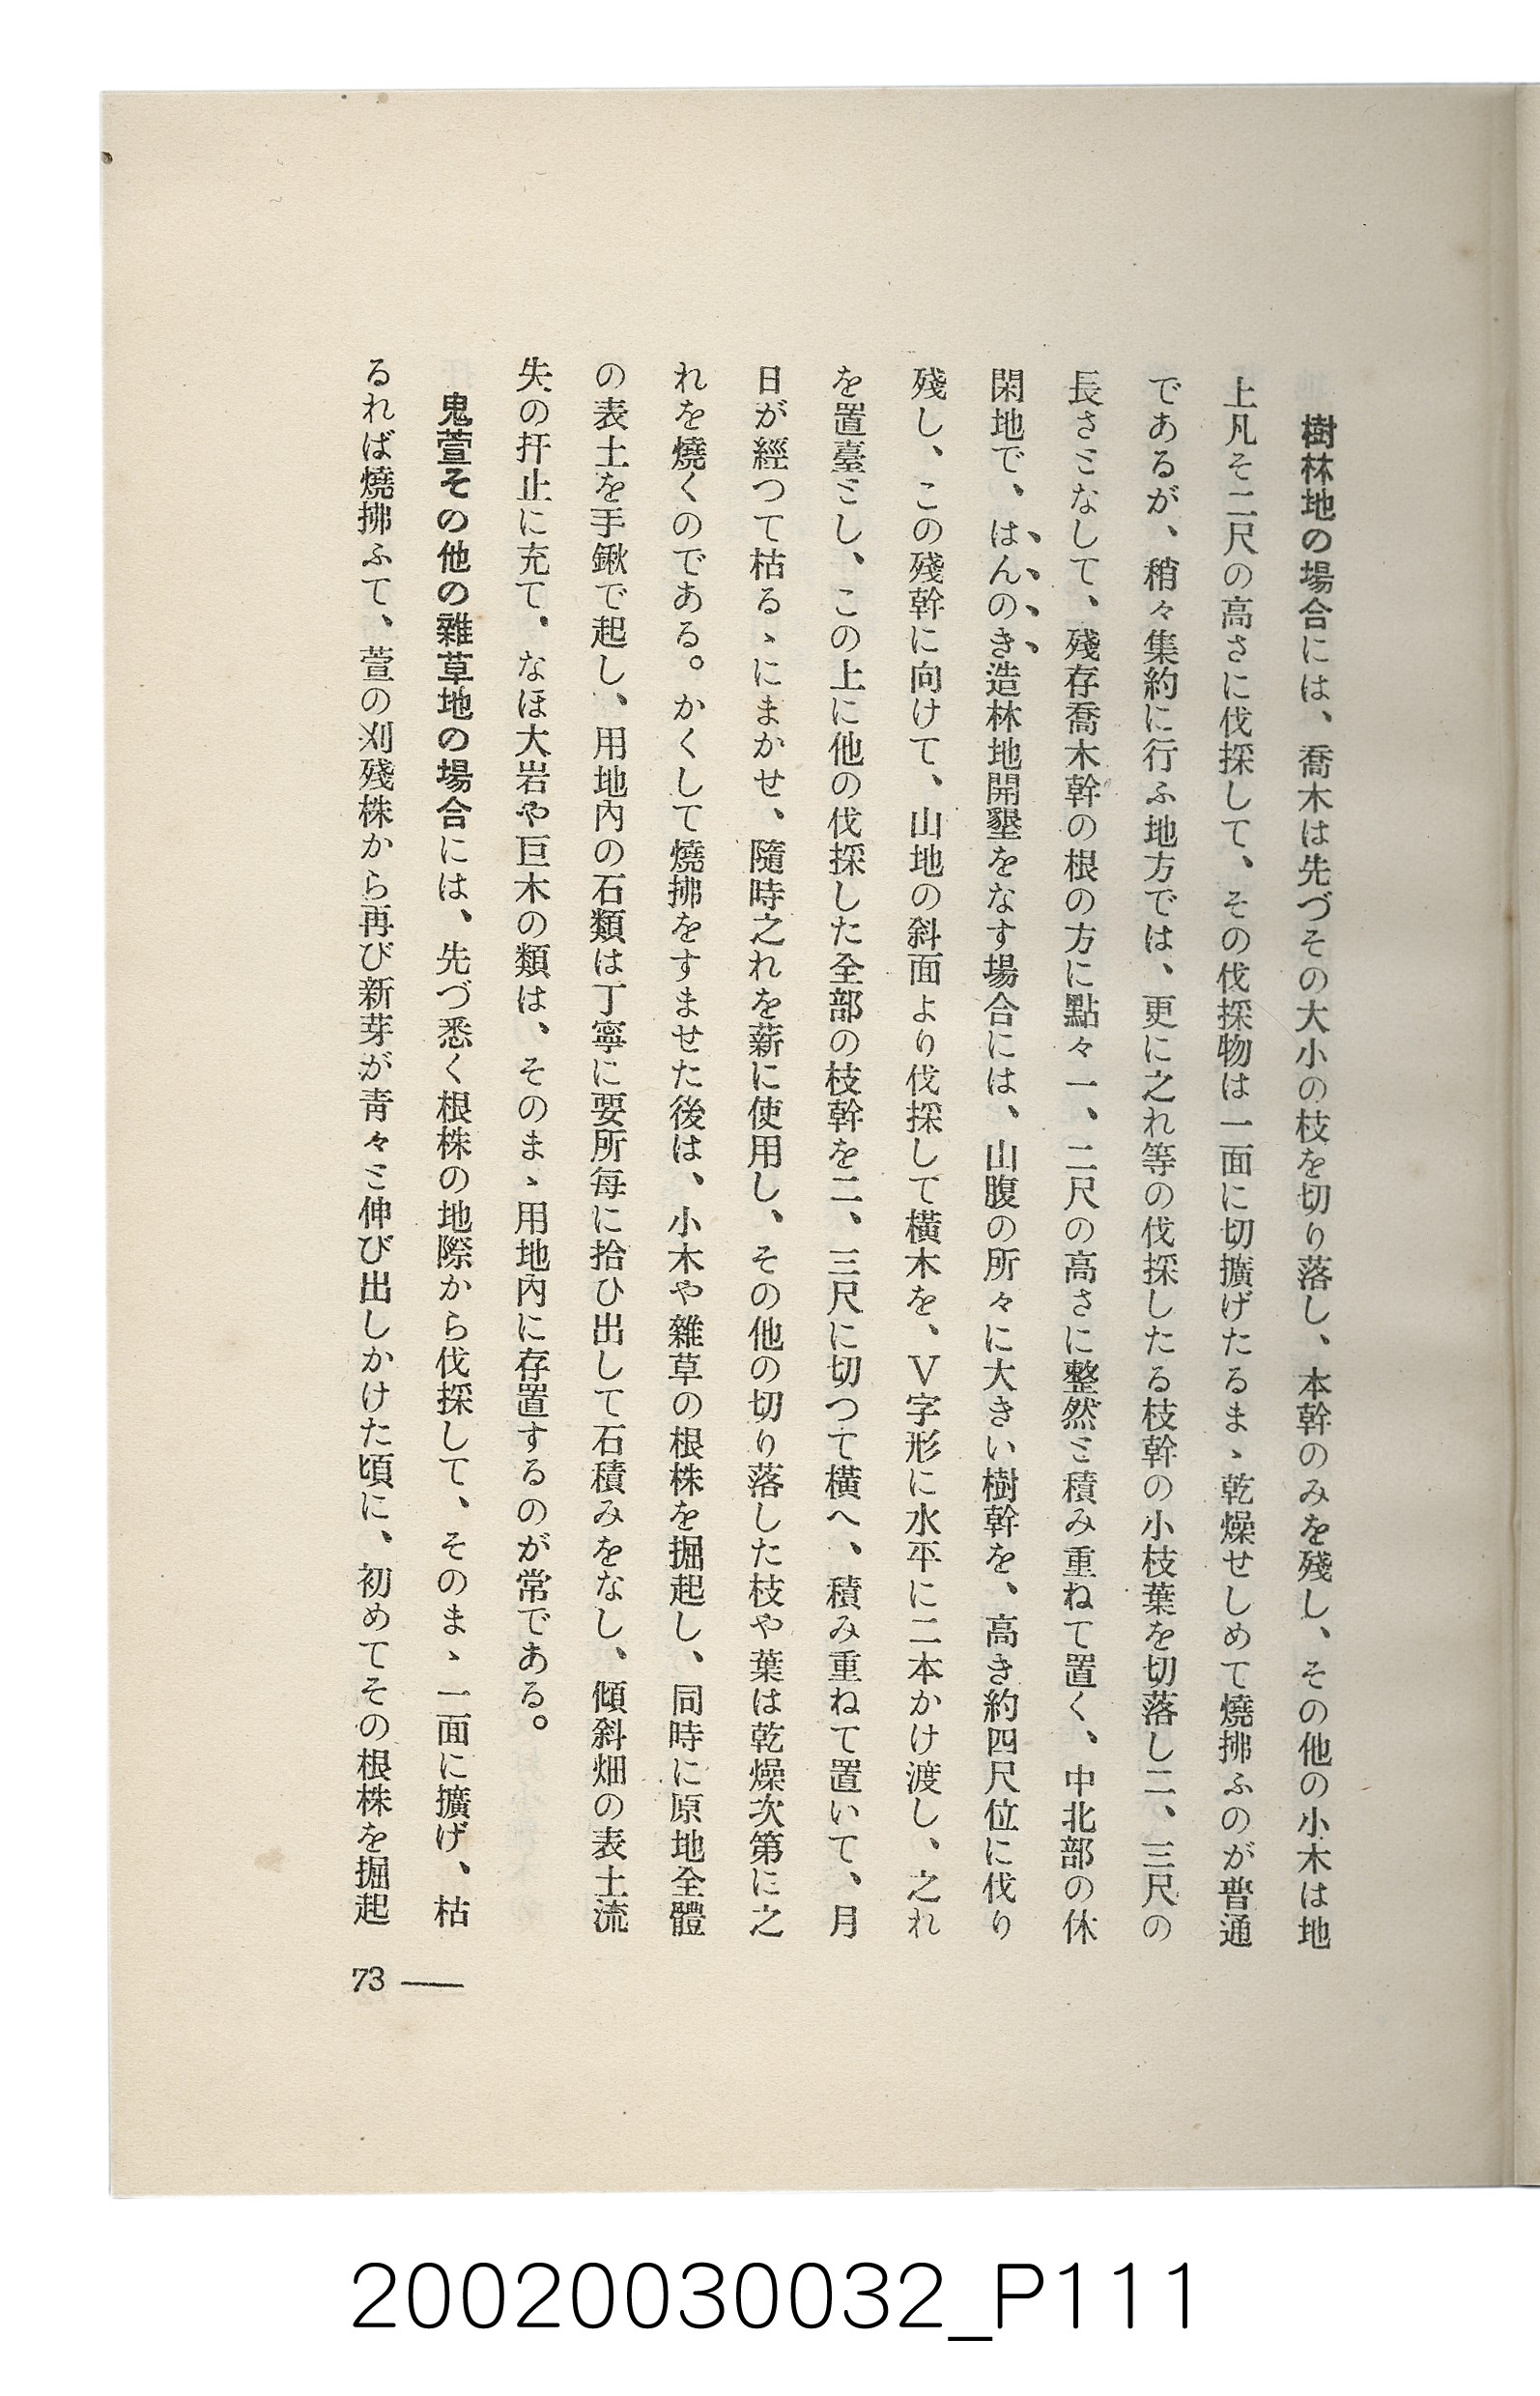 樹林地の場合には、喬木は先づその大小の枝を切り落し、本幹のみを殘し、その他の小木は地
上凡そ二尺の高さに伐採して、その伐採物は一面に切擴げたるまゝ乾燥せしめて燒拂ふのが普通
であるが、稍々集約に行ふ地方では、更に之れ等の伐採したる枝幹の小枝葉を切落し二、三尺の
長さミなして、殘存喬木幹の根の方に點々一、二尺の高さに整然ミ積み重ねて置く、中北部の休
閑地で、はんのき造林地開墾をなす場合には、山腹の所々に大きい樹幹を、高き約四尺位に伐り
殘し、この殘幹に向けて、山地の斜面より伐採して橫木を、V字形に水平に二本かけ渡し、之れ
を置臺ミし、この上に他の伐採した全部の枝幹を二、三尺に切つて橫へ、積み重ねて置いて、月
日が經つて枯るゝにまかせ、隨時之れを薪に使用し、その他の切り落した枝や葉は乾燥次第に之
れを燒くのである。かくして燒拂をすませた後は、小木や雜草の根株を掘起し、同時に原地全體
の表土を手鍬で起し、用地內の石類は丁寧に要所每に拾ひ出して石積みをなし、傾斜畑の表土流
失の扞止に充て、なほ大岩や巨木の類は、そのまゝ用地內に存置するのが常である。
鬼萱その他の雜草地の場合には、先づ悉く根株の地際から伐採して、そのまゝ一面に擴げ、枯
るれば燒拂ふて、萱の刈殘株から再び新芽が靑々ミ伸び出しかけた頃に、初めてその根株を掘起
73 —
20020030032_P111